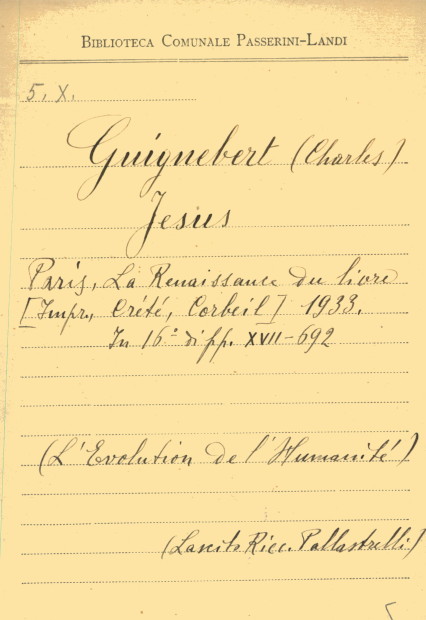 BIBLIOTECA COMUNALE PASSERINI-LANDI
5. X.
Guignebert (Charles)
Jesus
Paris, La Renaissance du livre
[Impr., Crété, Corbeil] 1933.
In 16° di pp. XVII-692
(L'Evolution de l'Humanité)
(Lascito Ricc. Pallastrelli)